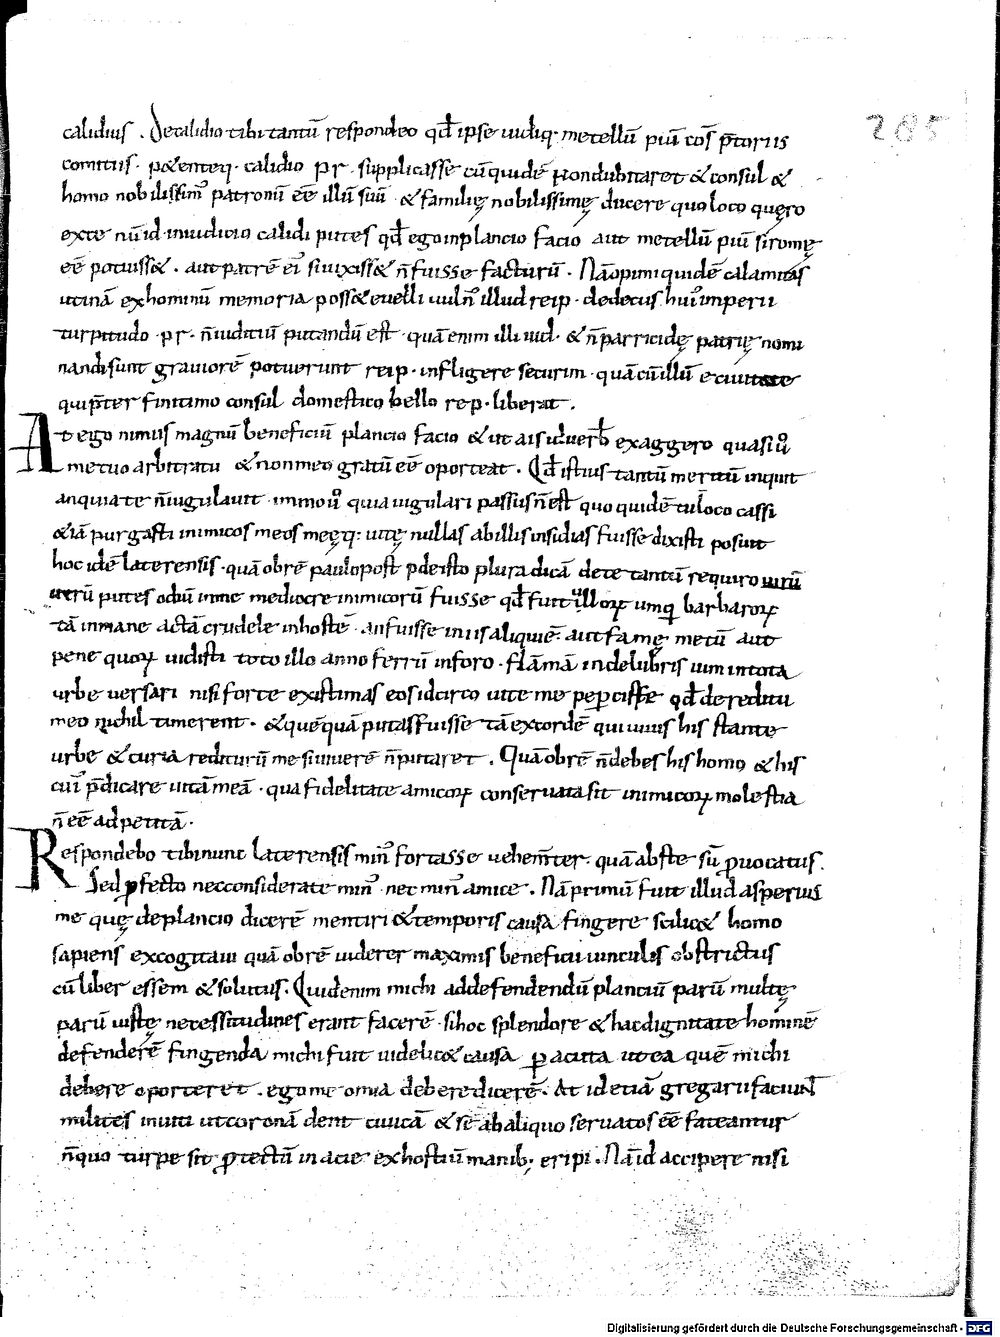 calidius . De calidio tibi tantū respondeo qd̄ ipse uidiq· metellū piū cōs p̄toriis
comitiis · p&enteq· calidio p̄r · supplicasse cū quidē non dubitaret & consul &
homo nobilissim᷒ patronū eē illū suū · & familię nobilissimę ducere quo loco quęro
ex te nū id in iudicio calidi putes qd̄ ego in plancio facio aut metellū piū si romę
eē potuiss& · aut patrē ei᷒ si uixiss& n̄ fuisse facturū · Nā opimi quidē calamitas
utinā ex hominū memoria poss& euelli uuln᷒ illud reip · dedecus hui᷒ imperii
turpitudo ·pr· n̄ iuditiū putandū est · quā enim illi iud· & n̄ parricidę patrię nomi
nandi sunt grauiorē potuerunt reip · infligere securim · quā cū illū e ciuitate
qui p̄ter finitimo consul domestico bello rep · liberat .
At ego nimius magnū beneficiū plancio facio & ut ais id uerb exaggero quasi ū
me tuo arbitratu & non meo gratū eē oporteat . Qd̄ istius tantū meritū inquit
an quia te n̄ iugulauit · immo ū quia iugulari passus n̄ est quo quidē tu loco cassi
& iā purgasti inimicos meos meęq: uitę nullas ab illis insidias fuisse dixisti posuit
hoc idē laterensis · quā obrē paulo post p de isto plura dicā de te tantū requiro utrū
utrū putes odiū in me mediocre inimicorū fuisse qd̄ fuit ullorꝝ umq̄ barbarorꝝ
tā inmane ac tā crudele in hostē · an fuisse in iis aliquiē aut famę metū aut
pene quorꝝ uidisti toto illo anno ferrū in foro · flāmā in delubris uim in tota
urbe uersari nisi forte existimas eos idcirco uite me pepercisse qd̄ de reditu
meo nichil timerent · & quē quā putas fuisse tā excordē qui uiuis his stante
urbe & curia rediturū me si uiuerē n̄ putaret . Quā obrē n̄ debes his homo & his
cui᷒ p̄dicare uitā meā · qua fidelitate amicorꝝ conseruata sit inimicorꝝ molestia
n̄ eē adpetitā ·
Respondebo tibi nunc laterensis min᷒ fortasse uehem̄ter · quā abs te sū p̱uocatus .
Sed p̱fecto nec considerate min᷒ · nec min᷒ amice . Nā primū fuit illud asperius
me quę de plancio dicerē mentiri & temporis causa fingere scilic& homo
sapiens excogitaui quā obrē uiderer maximis beneficii uinculis obstrictus
cū liber essem & solutus . Quid enim michi ad defendendū planciū parū multę
parū iustę necessitudines erant facerē · si hoc splendore & hac dignitate hominē
defenderē fingenda michi fuit uidelic& causa p acuta ut ea quē michi
debere oporteret . ego me omīa debere dicerē . At id etiā gregarii faciun̄
milites inuiti ut coronā dent ciuicā & se ab aliquo seruatos eē fateantur
n̄ quo turpe sit p̱tectū in acie ex hostiū manib; eripi . Nā id accipere nisi
285
Digitalisierung gefördert durch die Deutsche Forschungsgemeinschaft - DFG